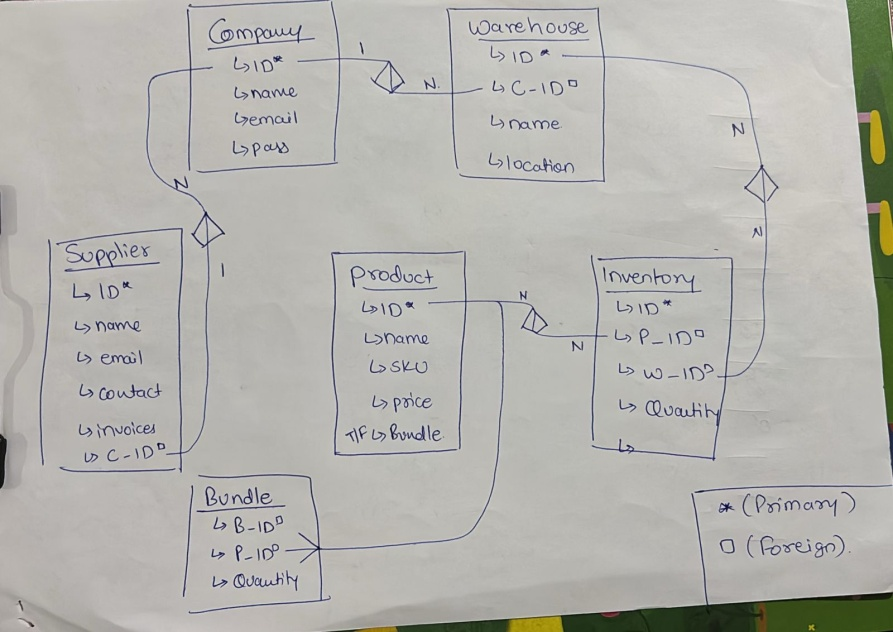 Company
↳ ID*
↳ name
↳ email
↳ pass
1
N
Warehouse
↳ ID*
↳ C-ID□
↳ name
↳ location
N
N
N
1
Supplier
↳ ID*
↳ name
↳ email
↳ contact
↳ invoices
↳ C-ID□
Product
↳ ID*
↳ name
↳ SKU
↳ price
T/F ↳ Bundle
N
N
Inventory
↳ ID*
↳ P_ID□
↳ W-ID□
↳ Quantity
↳
Bundle
↳ B-ID□
↳ P_ID□
↳ Quantity
* (Primary)
□ (Foreign).